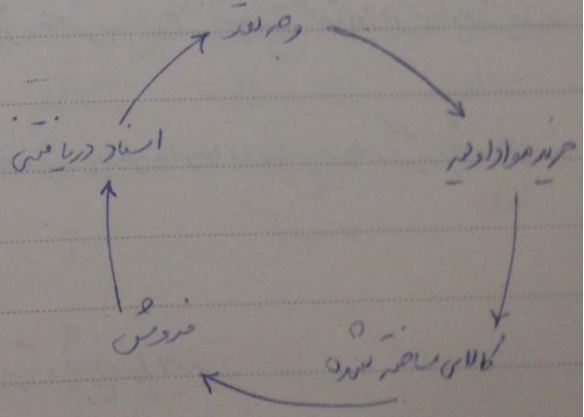 وجه نقد
خرید مواد اولیه
کالای ساخته شده
فروش
اسناد دریافتنی